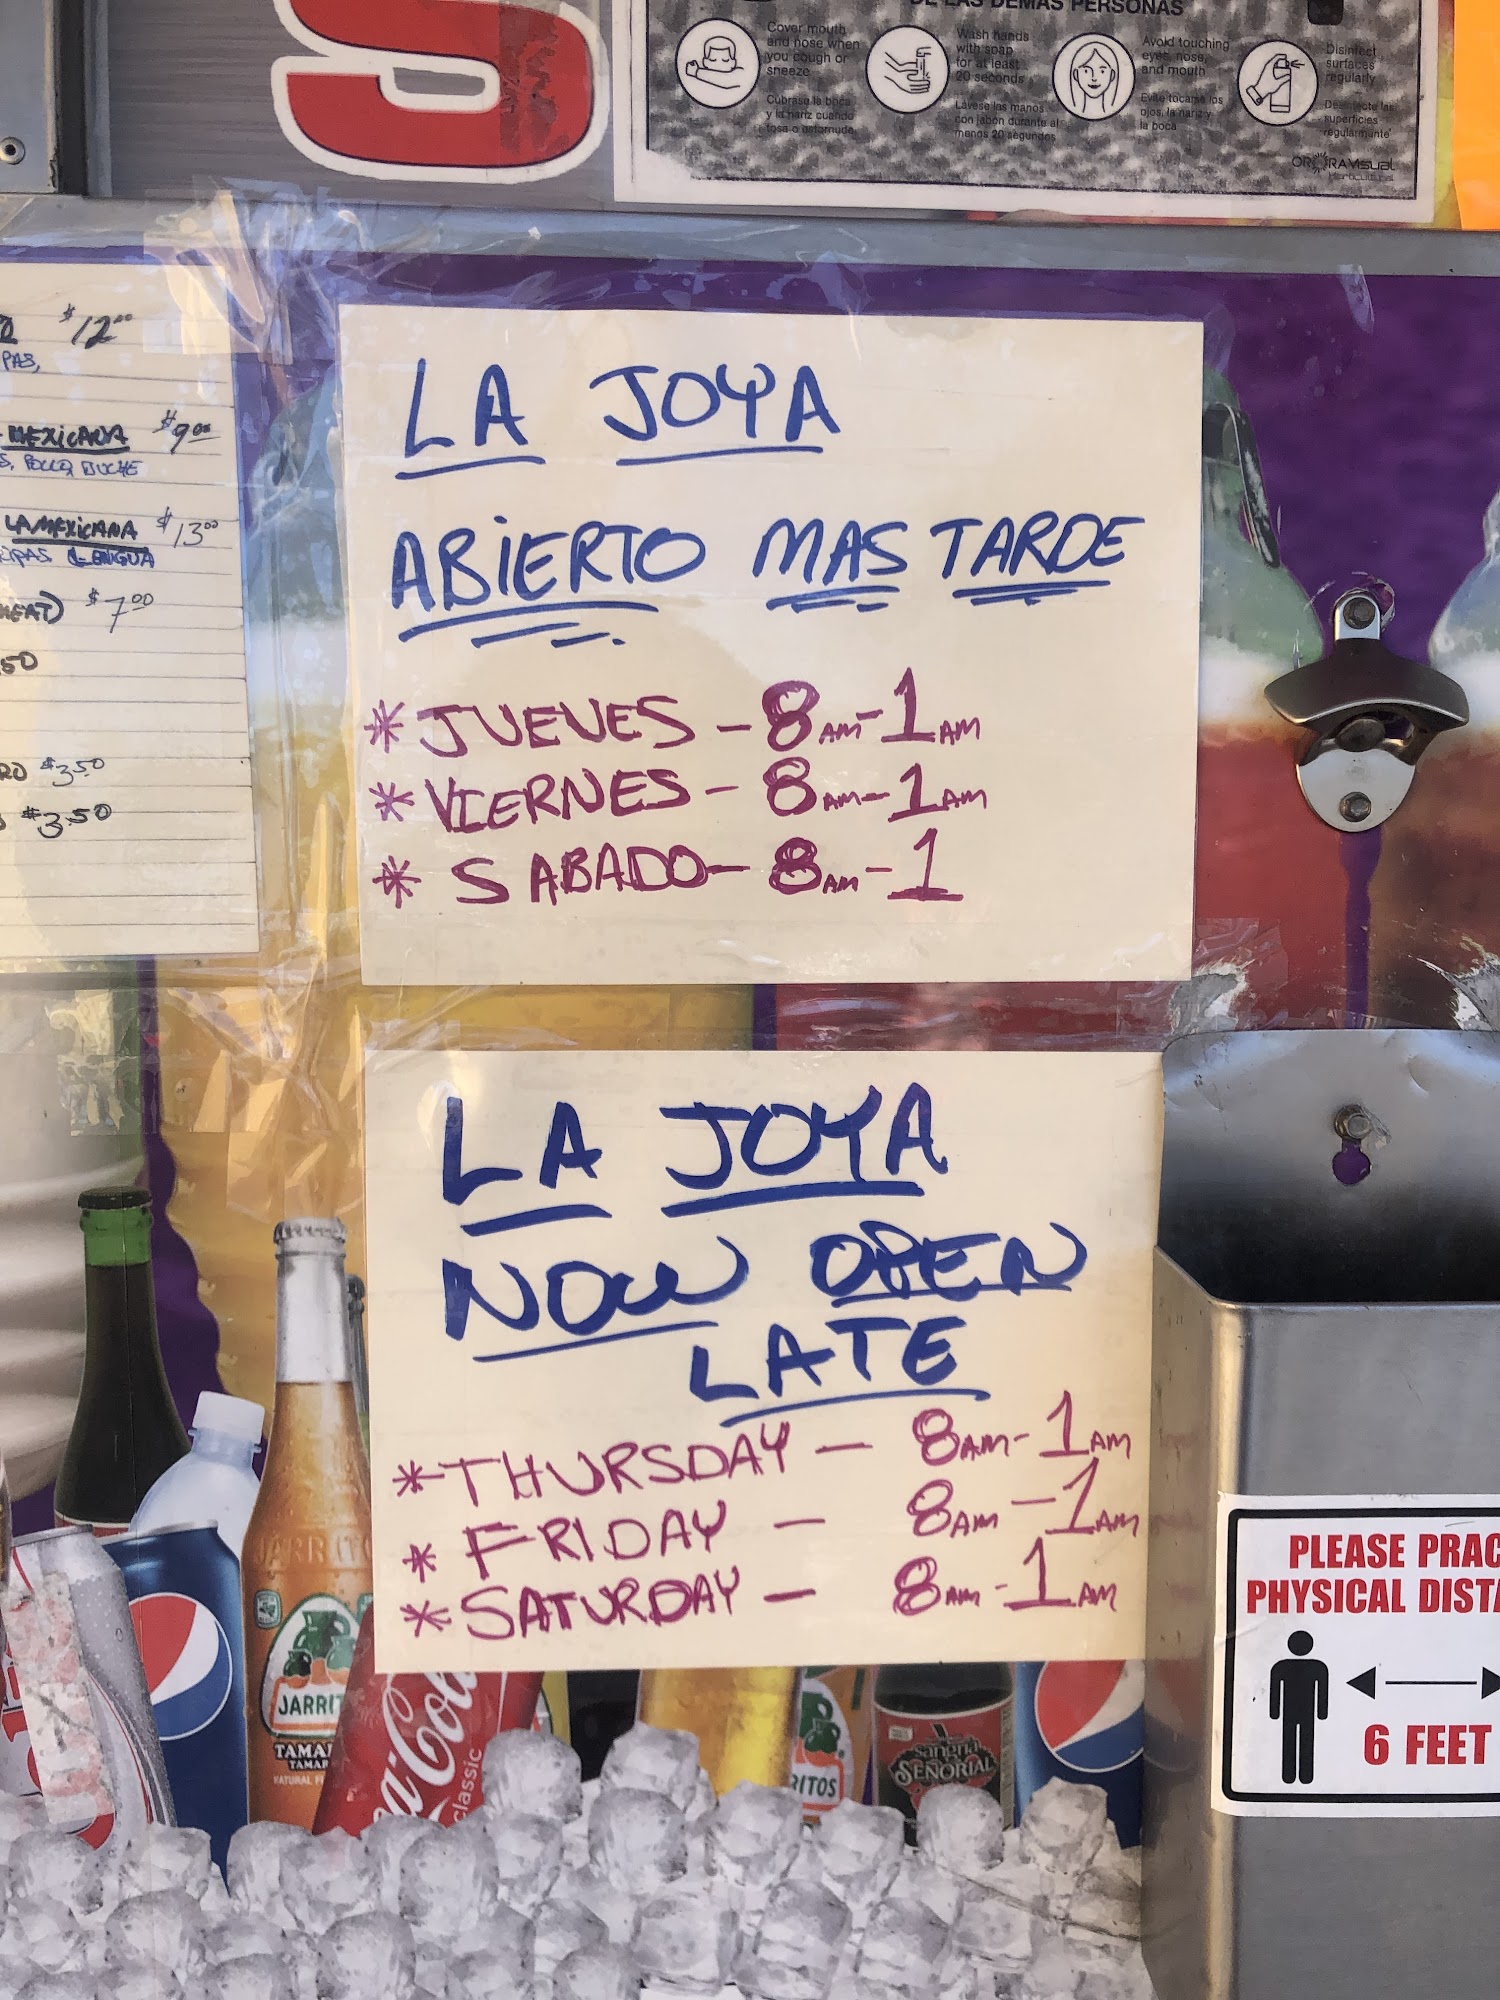 DE LAS DEMAS PERSONAS
Cover mouth
and nose when
you cough or
sneeze
Cubrase la boca
y la nariz cuando
tosa o estornude
Wash hands
with soap
for at least
20 seconds
Lávese las manos
con jabon durante al
menos 20 segundos
Avoid touching
eyes, nose,
and mouth
Evite tocarse los
ojos, la nariz y
la boca
Disinfect
surfaces
regularly
superficies
regularmente
$12.00
PAS,
MEXICANA $9.00
S, POLLO, BUCHE
LA MEXICANA $13.00
LENGUA
MEAT) $7.00
50
RO $3.50
$3.50
LA JOYA
ABIERTO MAS TARDE
* JUEVES - 8AM - 1AM
* VIERNES - 8AM - 1AM
* SABADO - 8AM - 1
LA JOYA
NOW OPEN
LATE
* THURSDAY - 8AM - 1AM
* FRIDAY - 8AM - 1AM
* SATURDAY - 8AM - 1AM
PLEASE PRAC
PHYSICAL DISTA
6 FEET
JARRITO
JARRIT
TAMA
TAMAR
NATURAL F
Coca Cola
classic
RITOS
Sangria
SEÑORIAL